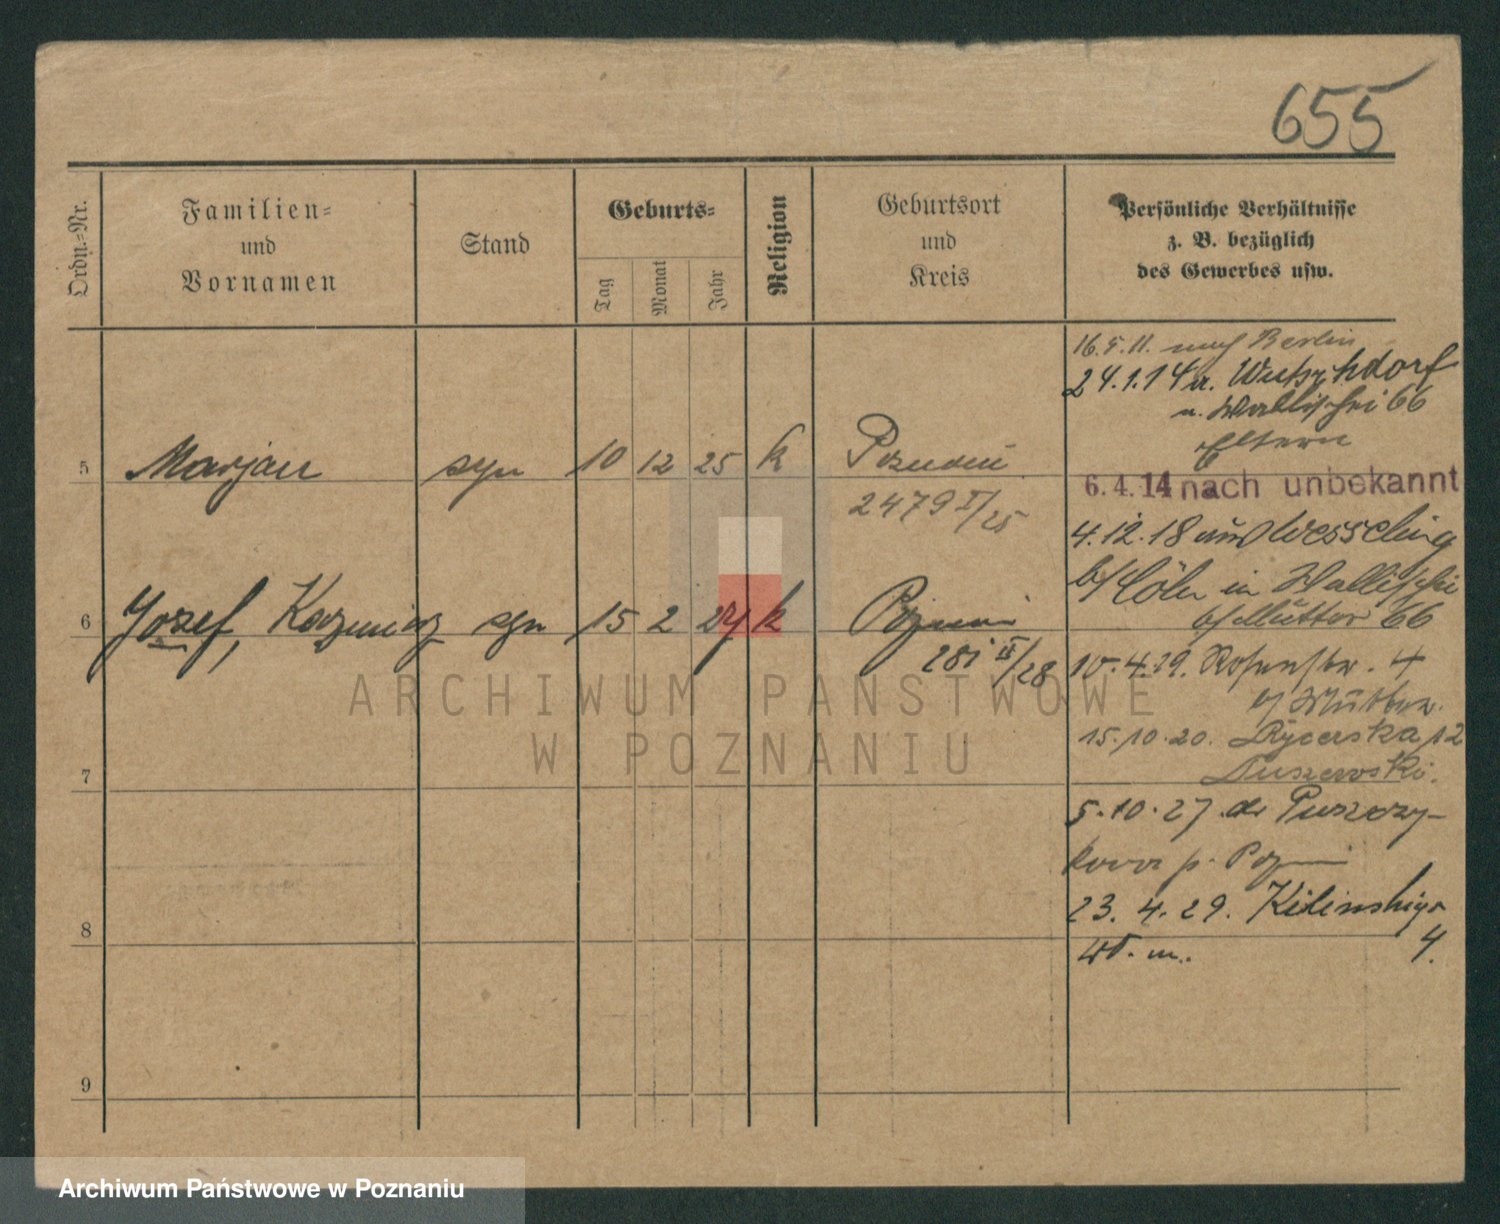 655
Ordn.-Nr.
Familien-
und
Vornamen
Stand
Geburts-
Tag
Monat
Jahr
Religion
Geburtsort
und
Kreis
Persönliche Verhältnisse
z. B. bezüglich
des Gewerbes usw.
16.5.11. nach Berlin
24.1.14 a.
u. Wallischei 66
Eltern
5 Marjan syn 10 12 25 k Poznań
2479 I/25
6.4.14 nach unbekannt
4.12.18 aus Wesseling
b/ Cöln in Wallischei
b/ Mutter 66
6 Józef, Kazimierz syn 15 2 27 k Poznań
281 II/28
10.4.19. Rosenstr. 4
b/ Mutter.
15.10.20. Rycerska 12
7
5.10.27. do Puszczy-
kowa p. Pozn
23.4.29. Kilinskiego
4.
w m.
8
9
ARCHIWUM PAŃSTWOWE
W POZNANIU
Archiwum Państwowe w Poznaniu